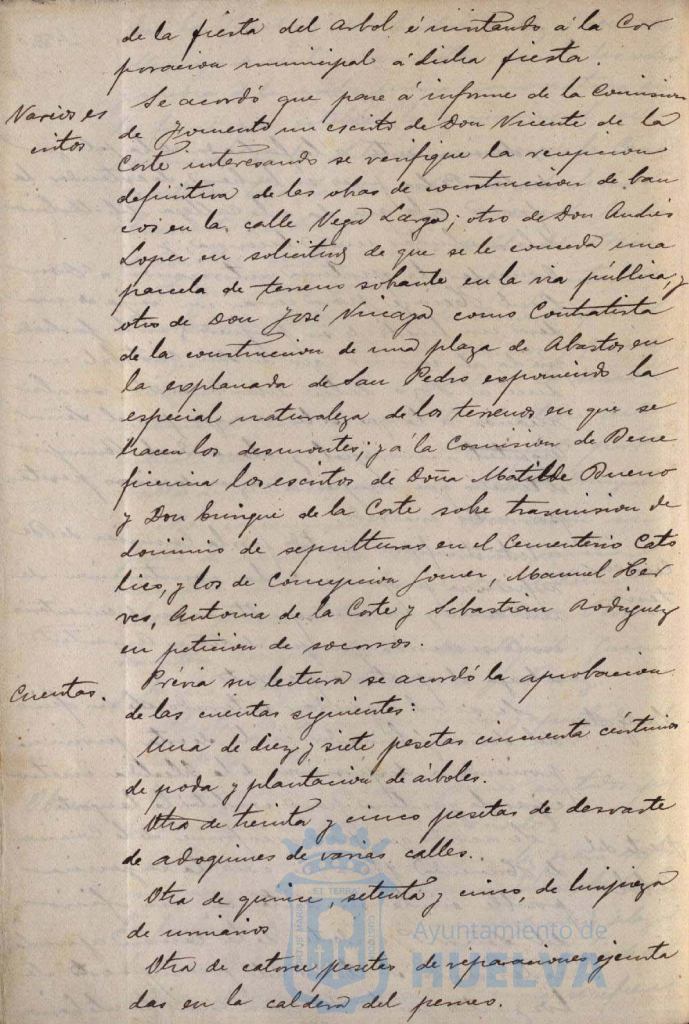 de la fiesta del arbol é invitando á la Cor
poracion municipal á dicha fiesta.
Varios es
critos
Se acordó que pase á informe de la Comision
de Fomento un escrito de Don Vicente de la
Corte interesando se verifique la recepcion
definitiva de las obras de construccion de ban
cos en la calle Vega Larga; otro de Don Andrés
Lopez en solicitud de que se le conceda una
parcela de terreno sobrante en la via pública, y
otro de Don José Vizcaya como Contratista
de la construccion de una plaza de Abastos en
la explanada de San Pedro exponiendo la
especial naturaleza de los terrenos en que se
hacen los desmontes; y á la Comision de Bene
ficencia los escritos de Doña Matilde Bueno
y Don Enrique de la Corte sobre trasmision de
dominio de sepulturas en el Cementerio Cató
lico, y los de Concepcion Gomez, Manuel Her
ves, Antonia de la Corte y Sebastian Rodriguez
en peticion de socorros.
Cuentas.
Prévia su lectura se acordó la aprobacion
de las cuentas siguientes:
Una de diez y siete pesetas cincuenta céntimos
de poda y plantacion de árboles.
Otra de treinta y cinco pesetas de desvaste
de adoquines de varias calles.
Otra de quince, setenta y cinco, de limpieza
de urinarios
Otra de catorce pesetas de reparaciones ejecuta
das en la caldera del perneo.
Ayuntamiento de
HUELVA